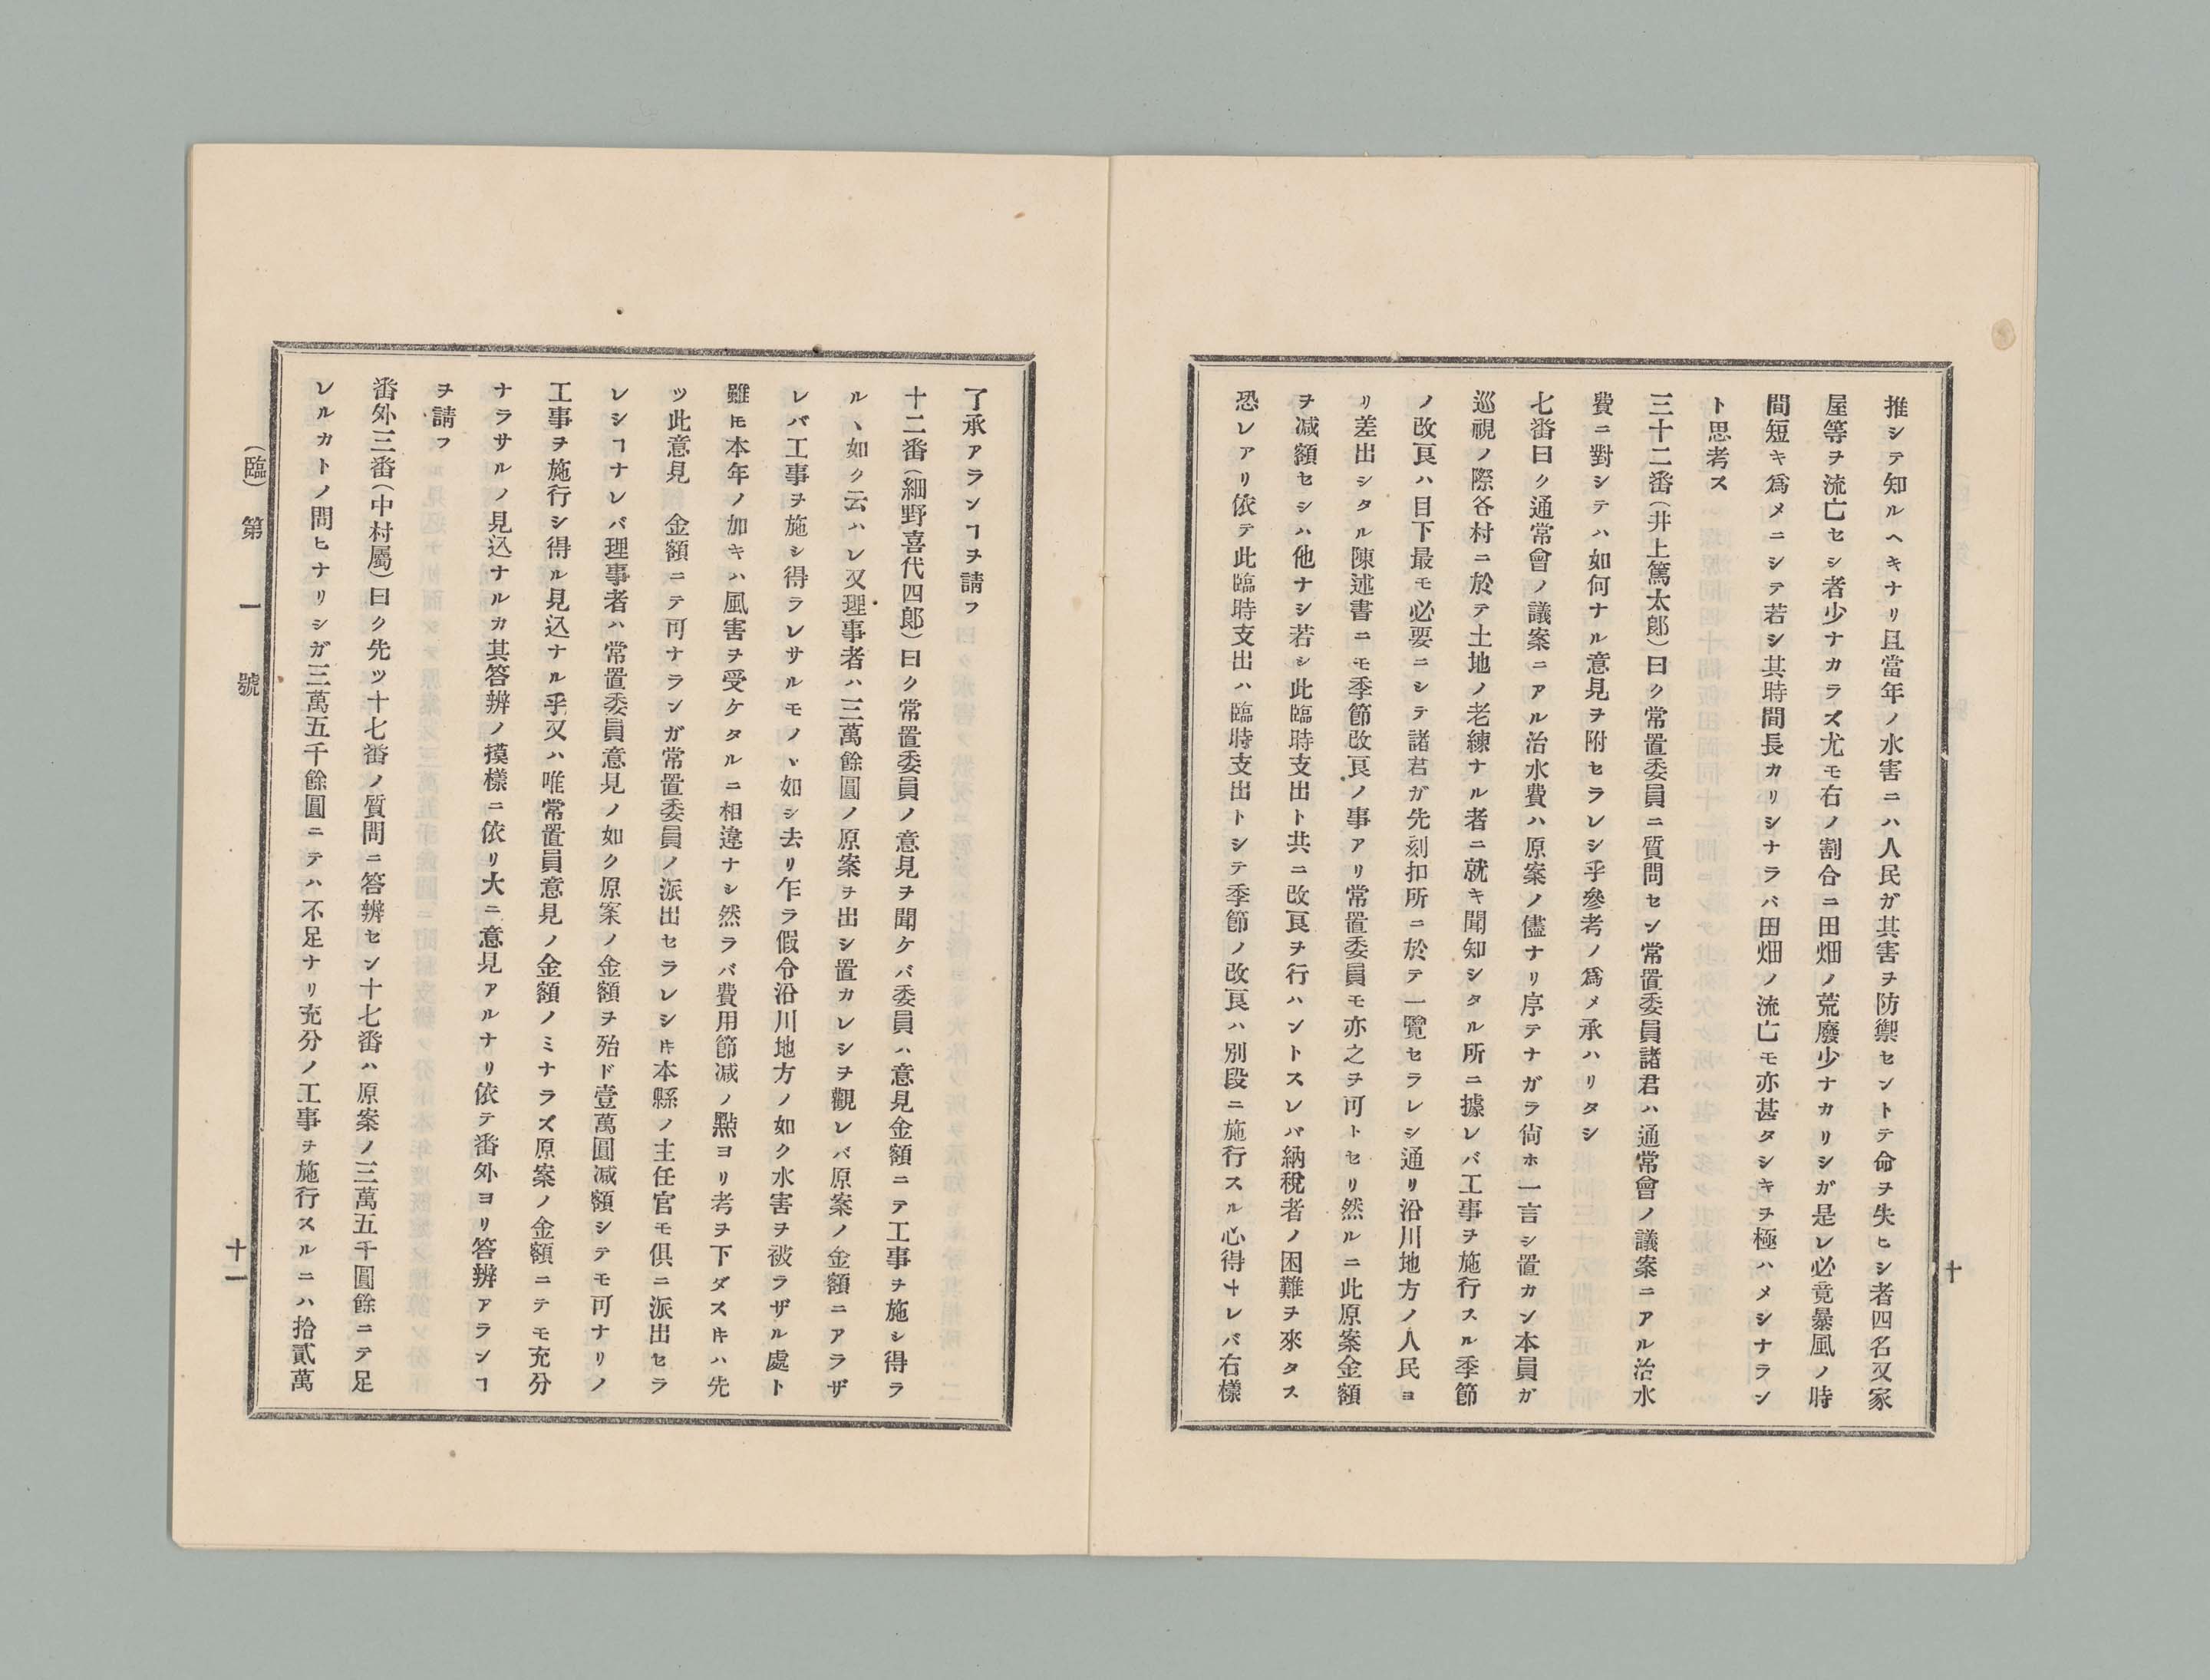 推シテ知ルヘキナリ且當年ノ水害ニハ人民ガ其害ヲ防禦セントテ命ヲ失ヒシ者四名又家
屋等ヲ流亡セシ者少ナカラズ尤モ右ノ割合ニ田畑ノ荒廢少ナカリシガ是レ必竟暴風ノ時
間短キ爲メニシテ若シ其時間長カリシナラバ田畑ノ流亡モ亦甚タシキヲ極ハメシナラン
ト思考ス
三十二番(井上篤太郎)曰ク常置委員ニ質問セン常置委員諸君ハ通常會ノ議案ニアル治水
費ニ對シテハ如何ナル意見ヲ附セラレシ乎參考ノ爲メ承ハリタシ
七番曰ク通常會ノ議案ニアル治水費ハ原案ノ儘ナリ序テナガラ尙ホ一言シ置カン本員ガ
巡視ノ際各村ニ於テ土地ノ老練ナル者ニ就キ聞知シタル所ニ據レバ工事ヲ施行スル季節
ノ改良ハ目下最モ必要ニシテ諸君ガ先刻扣所ニ於テ一覽セラレシ通リ沿川地方ノ人民ヨ
リ差出シタル陳述書ニモ季節改良ノ事アリ常置委員モ亦之ヲ可トセリ然ルニ此原案金額
ヲ减額セシハ他ナシ若シ此臨時支出ト共ニ改良ヲ行ハントスレバ納稅者ノ困難ヲ來タス
恐レアリ依テ此臨時支出ハ臨時支出トシテ季節ノ改良ハ別段ニ施行スル心得ナレバ右樣
十
了承アランヿヲ請フ
十二番(細野喜代四郎)曰ク常置委員ノ意見ヲ聞ケバ委員ハ意見金額ニテ工事ヲ施シ得ラ
ルヽ如ク云ハレ又理事者ハ三萬餘圓ノ原案ヲ出シ置カレシヲ觀レバ原案ノ金額ニアラザ
レバ工事ヲ施シ得ラレサルモノヽ如シ去リ乍ラ假令沿川地方ノ如ク水害ヲ被ラザル處ト
雖𪜈本年ノ加キハ風害ヲ受ケタルニ相違ナシ然ラバ費用節减ノ㸃ヨリ考ヲ下ダス𪜈ハ先
ッ此意見 金額ニテ可ナランガ常置委員ノ派出セラレシ𪜈本縣ノ主任官モ俱ニ派出セラ
レシヿナレバ理事者ハ常置委員意見ノ如ク原案ノ金額ヲ殆ド壹萬圓减額シテモ可ナリノ
工事ヲ施行シ得ル見込ナル乎又ハ唯常置員意見ノ金額ノミナラズ原案ノ金額ニテモ充分
ナラサルノ見込ナルカ其答辨ノ摸樣ニ依リ大ニ意見アルナリ依テ番外ヨリ答辨アランヿ
ヲ請フ
番外三番(中村屬)曰ク先ッ十七番ノ質問ニ答辨セン十七番ハ原案ノ三萬五千圓餘ニテ足
レルカトノ問ヒナリシガ三萬五千餘圓ニテハ不足ナリ充分ノ工事ヲ施行スルニハ拾貳萬
(臨)第一號
十一